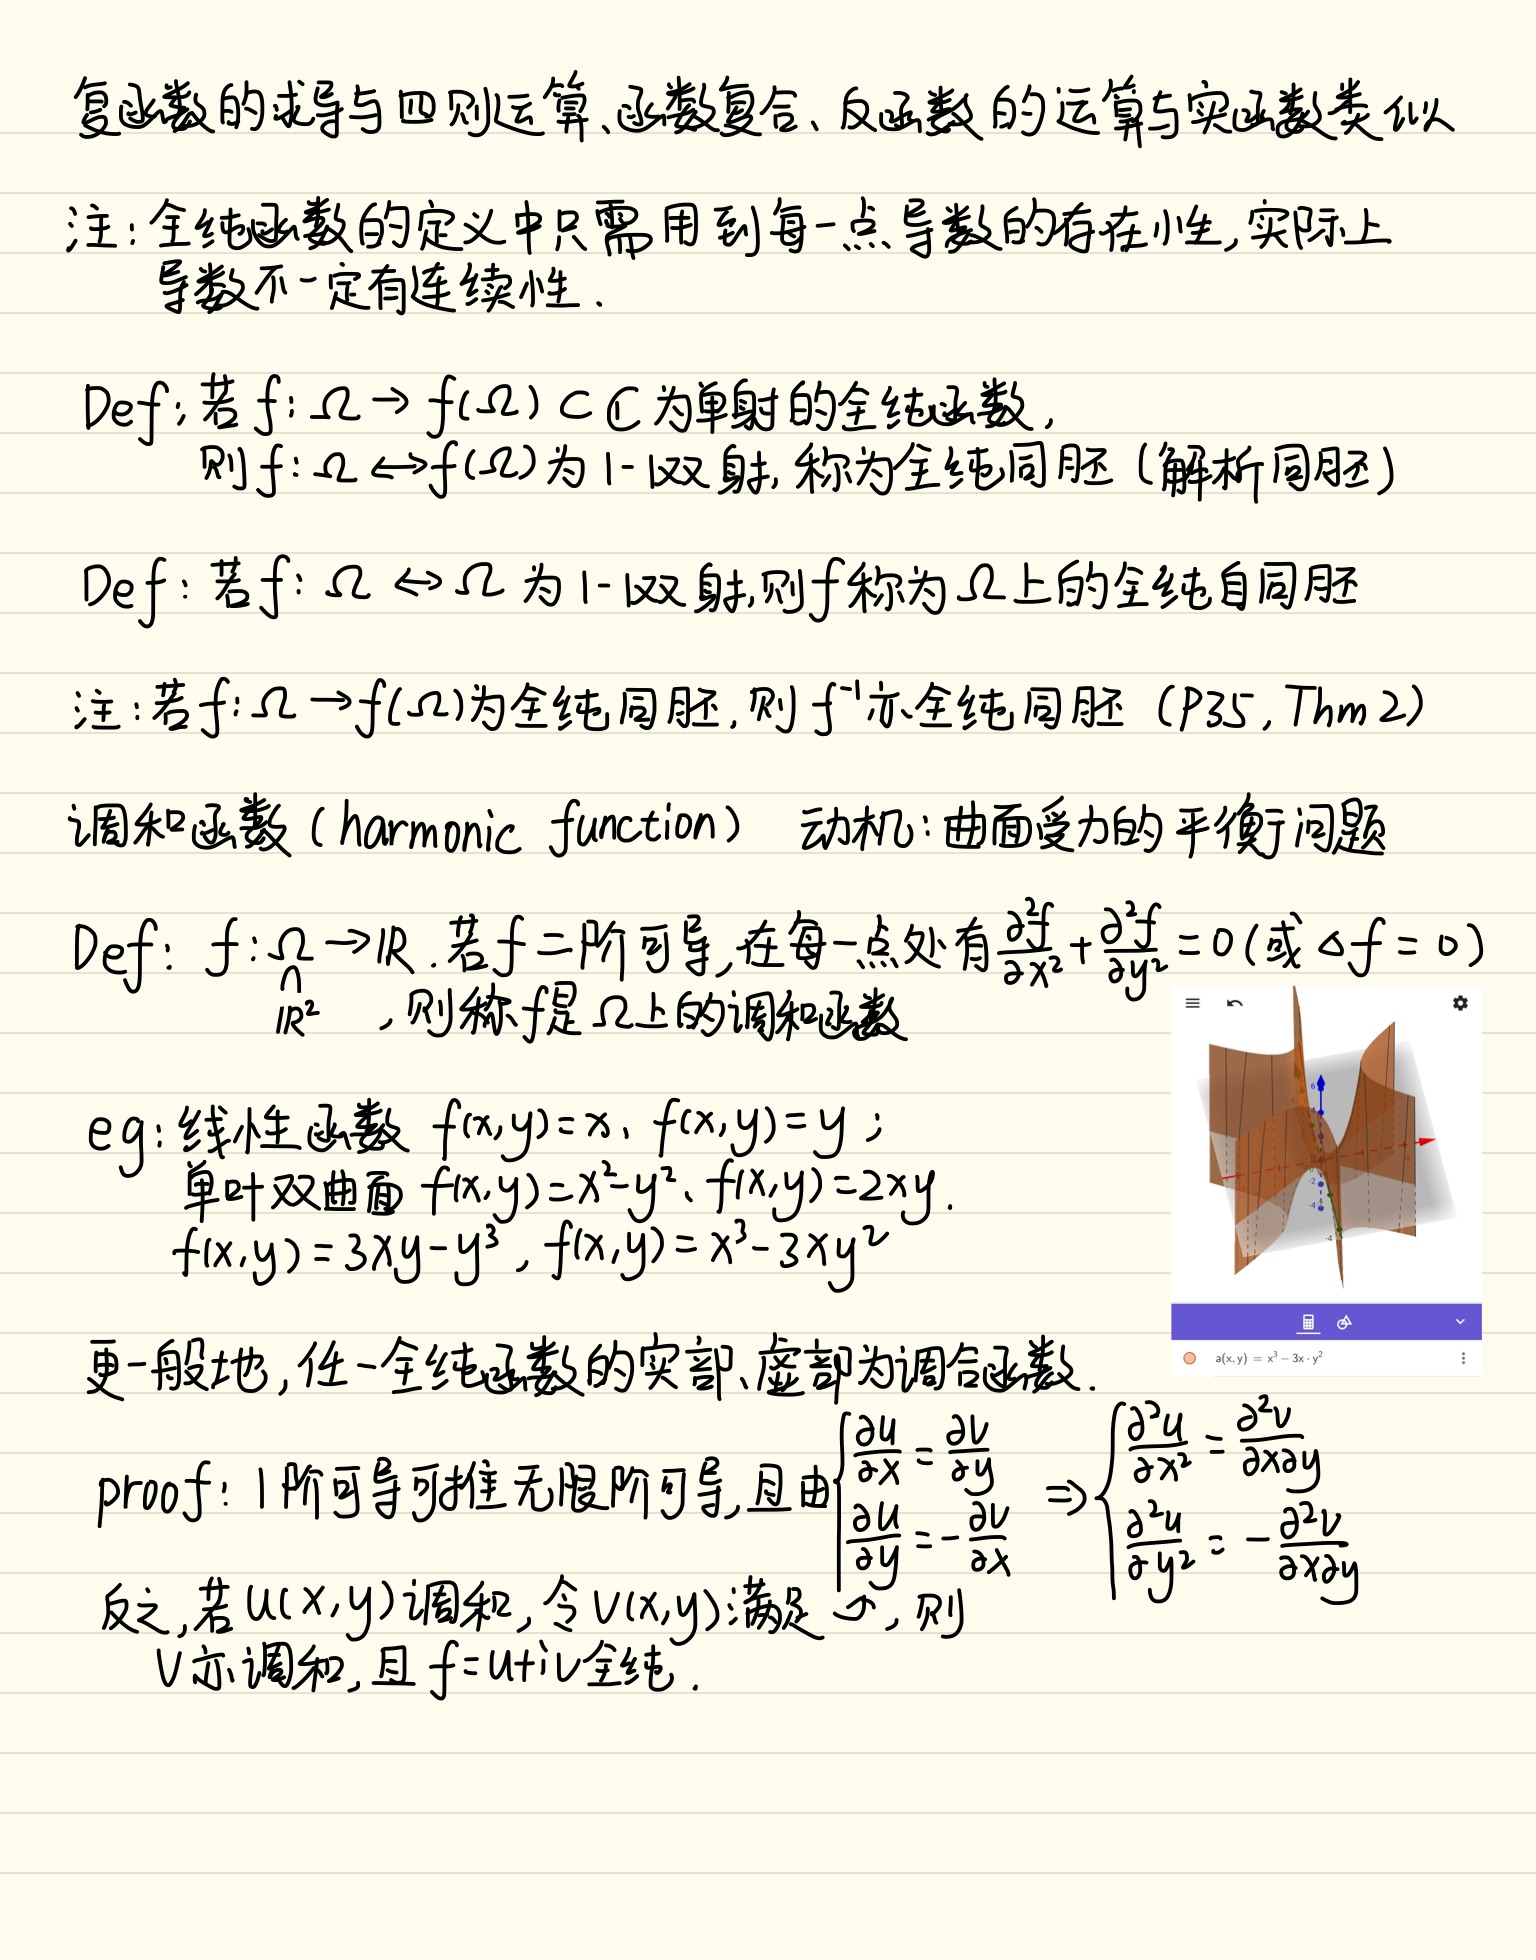 复函数的求导与四则运算、函数复合、反函数的运算与实函数类似
注:全纯函数的定义中只需用到每一点导数的存在性,实际上
导数不一定有连续性.
Def:若 f:Ω→f(Ω)⊂ℂ为单射的全纯函数,
则f:Ω↔f(Ω)为1-1双射,称为全纯同胚(解析同胚)
Def:若f:Ω↔Ω为1-1双射,则f称为Ω上的全纯自同胚
注:若f:Ω→f(Ω)为全纯同胚,则f⁻¹亦全纯同胚(P35,Thm2)
调和函数(harmonic function) 动机:曲面受力的平衡问题
Def: f:Ω→ℝ.若f二阶可导,在每一点处有∂²f/∂x²+∂²f/∂y²=0(或△f=0)
∩
ℝ² ,则称f是Ω上的调和函数
eg:线性函数 f(x,y)=x、f(x,y)=y;
单叶双曲面 f(x,y)=x²-y²、f(x,y)=2xy.
f(x,y)=3xy-y³,f(x,y)=x³-3xy²
6
-2
-4
-4
a(x, y) = x³ − 3x · y²
更一般地,任一全纯函数的实部、虚部为调合函数.
proof:1阶可导可推无限阶可导,且由{∂u/∂x=∂v/∂y ⇒ {∂²u/∂x²=∂²v/∂x∂y
∂u/∂y=-∂v/∂x ∂²u/∂y²=-∂²v/∂x∂y
反之,若u(x,y)调和,令v(x,y)满足⤴,则
v亦调和,且f=u+iv全纯.